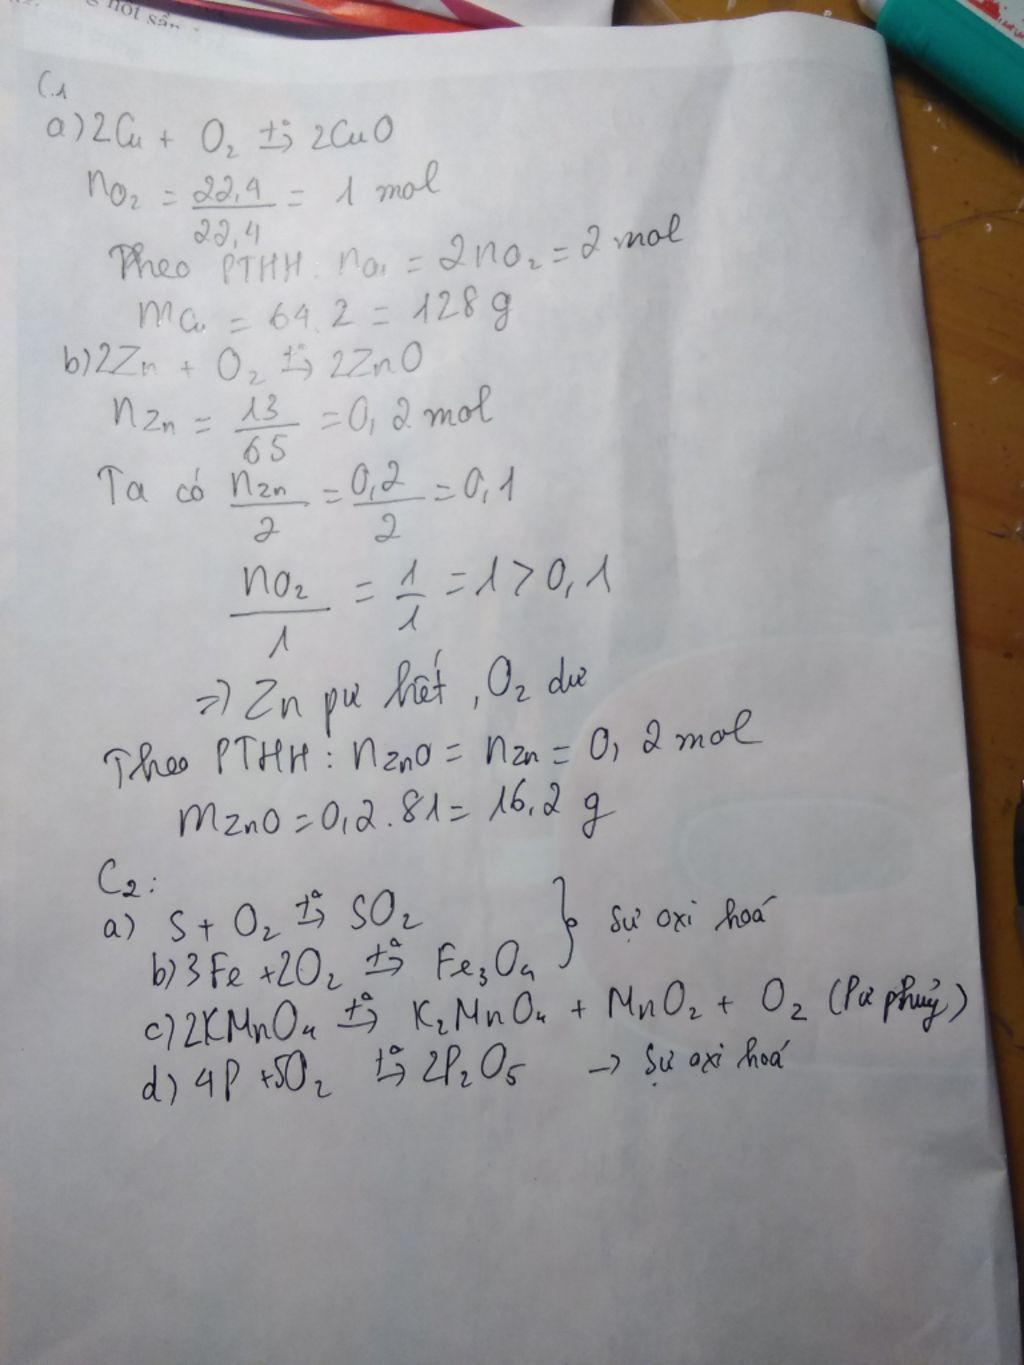 nơi sản
C.1
a) 2Cu + O₂ t°→ 2CuO
nO₂ = 22,4/22,4 = 1 mol
Theo PTHH: nCu = 2nO₂ = 2 mol
mCu = 64.2 = 128 g
b) 2Zn + O₂ t°→ 2ZnO
nZn = 13/65 = 0,2 mol
Ta có nZn/2 = 0,2/2 = 0,1
nO₂/1 = 1/1 = 1 > 0,1
=> Zn pư hết, O₂ dư
Theo PTHH: nZnO = nZn = 0,2 mol
mZnO = 0,2.81 = 16,2 g
C2:
a) S + O₂ t°→ SO₂ } Sự oxi hoá
b) 3Fe + 2O₂ t°→ Fe₃O₄
c) 2KMnO₄ t°→ K₂MnO₄ + MnO₂ + O₂ (Pư phuỷ)
d) 4P + 5O₂ t°→ 2P₂O₅ -> Sự oxi hoá